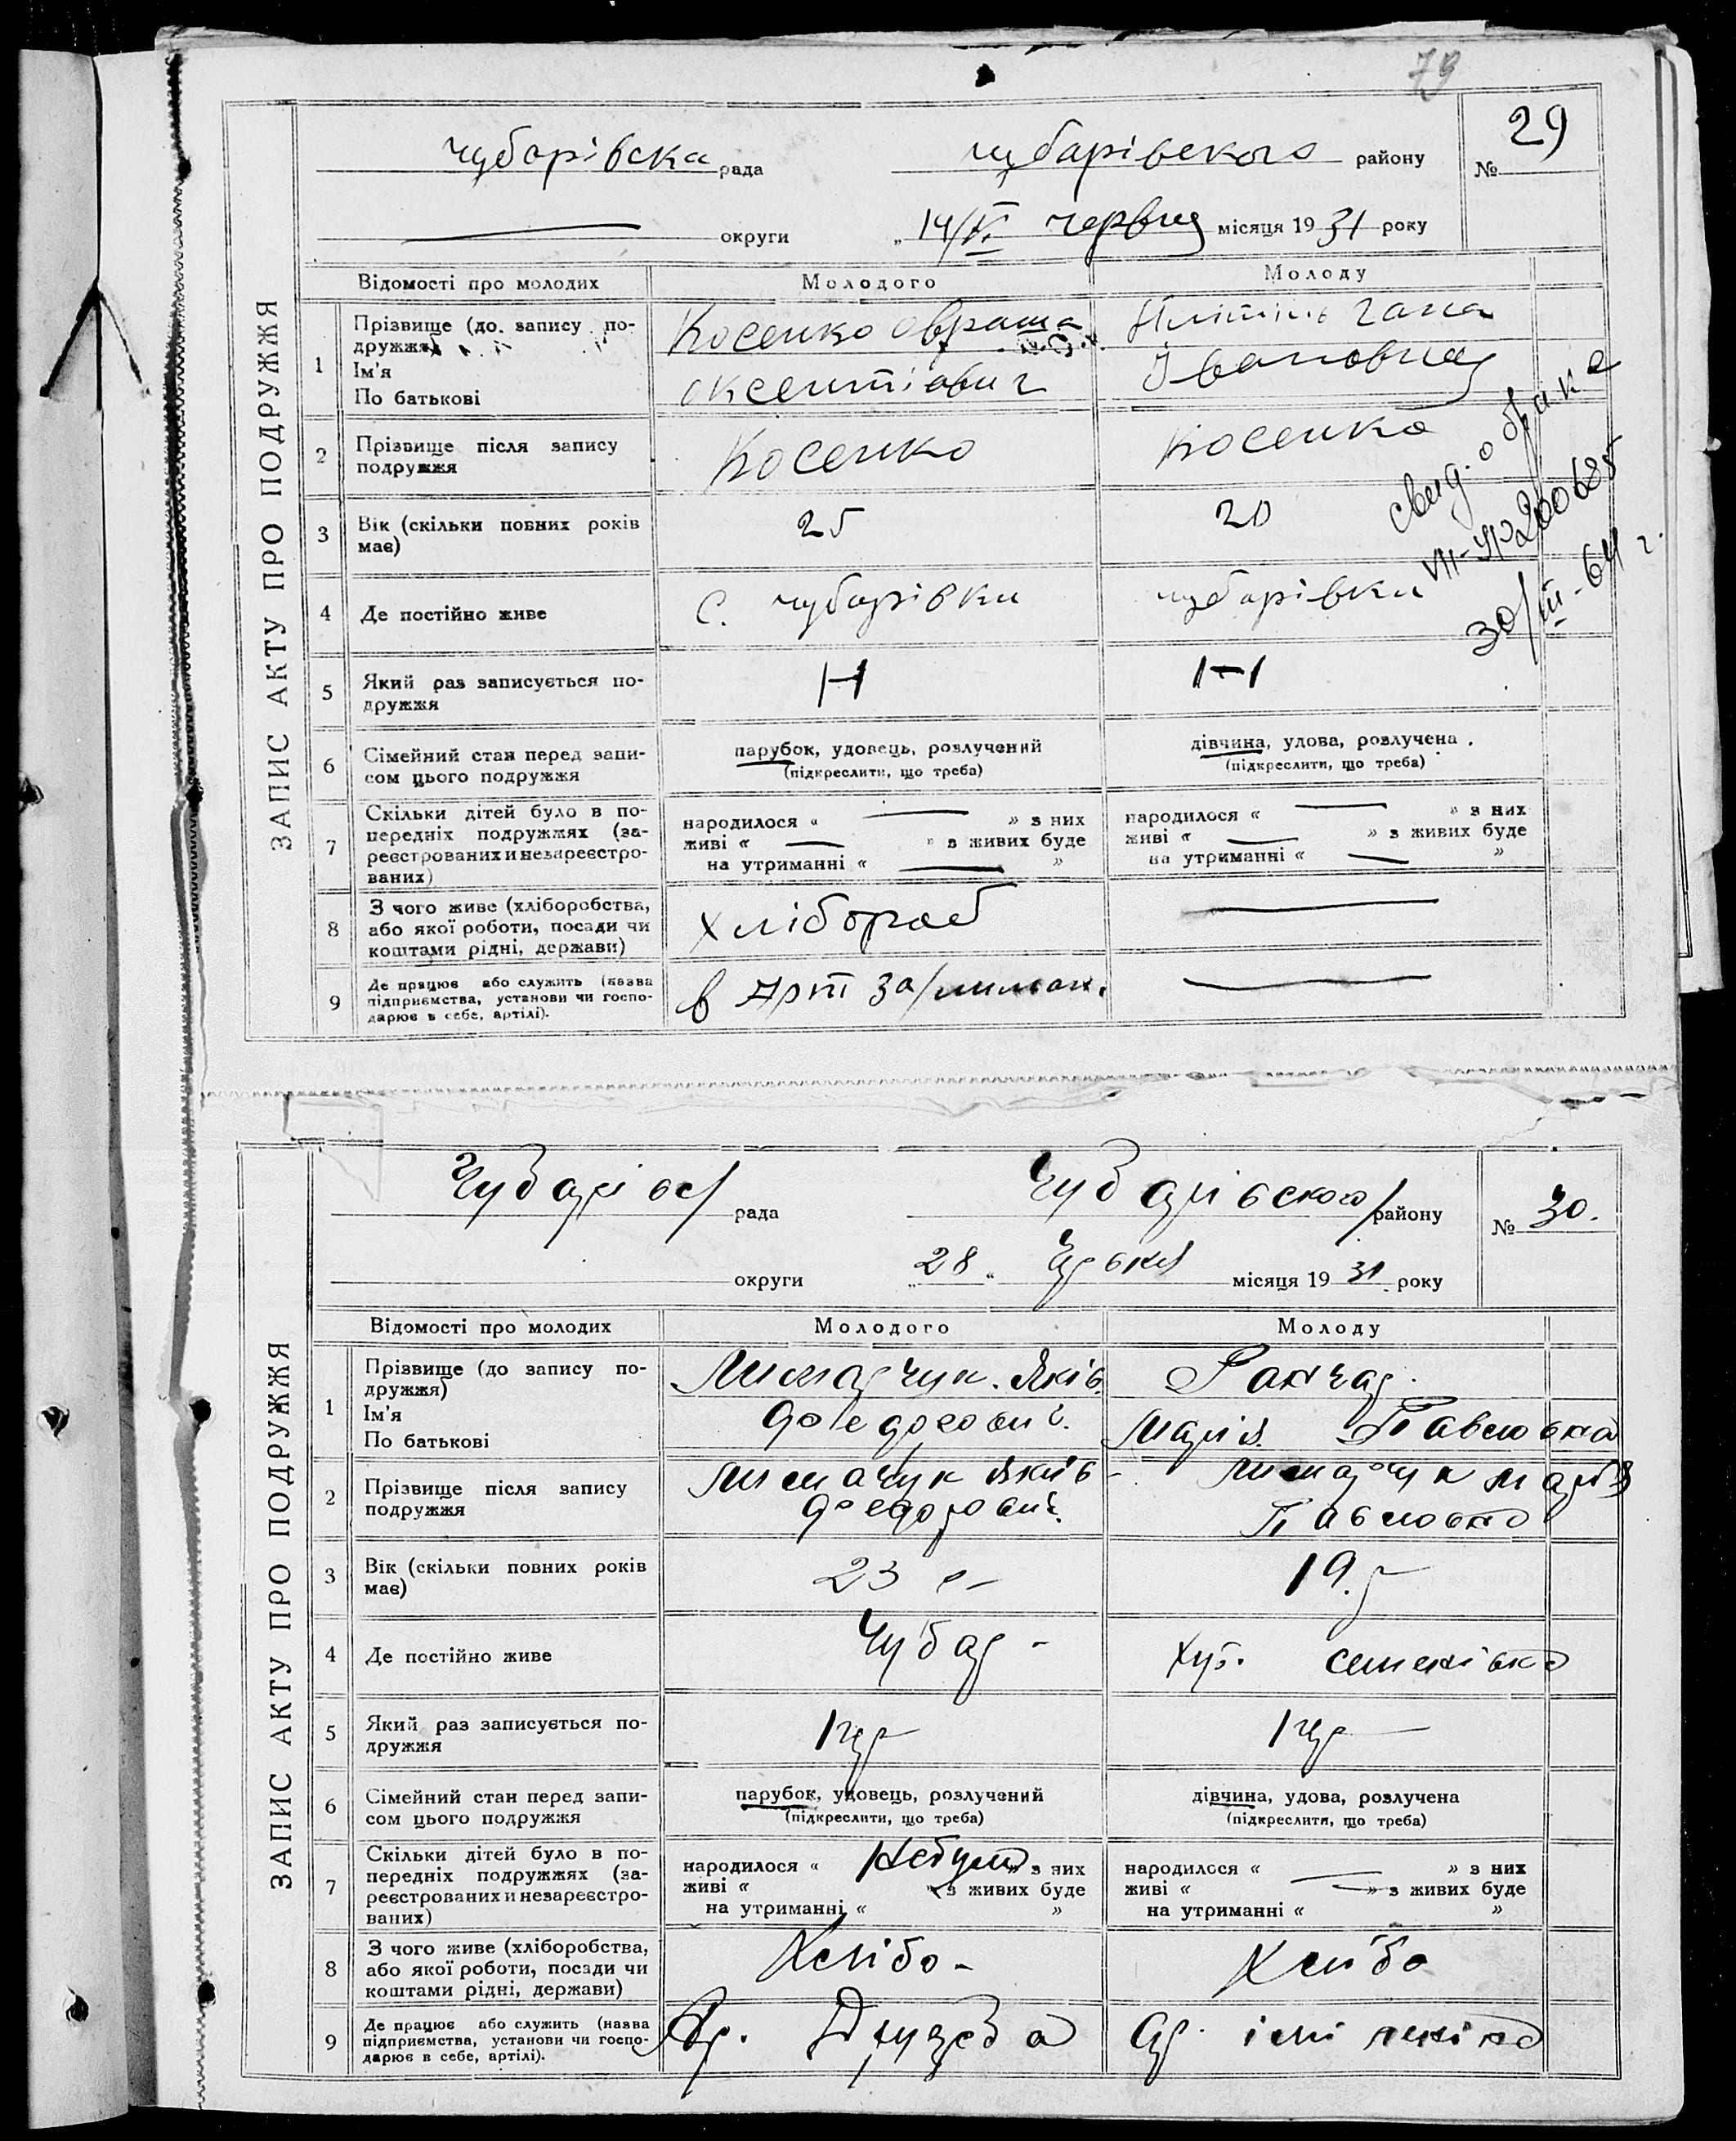 79
29
чубарівска рада чубарівского району №
округи „ 14/VI червня місяця 1931 року
Відомості про молодих Молодого Молоду
ЗАПИС АКТУ ПРО ПОДРУЖЖЯ
1 Прізвище (до запису по-
дружжя)
Ім'я
По батькові
Косенко
оксентіович
гана
Івановна
2 Прізвище після запису
подружжя
Косенко Косенко
свид. о браке
200685
30/III-64 г.
3 Вік (скільки повних років
має)
25 20
4 Де постійно живе с. чубарівки чубарівки
5 Який раз записується по-
дружжя
6 Сімейний стан перед запи-
сом цього подружжя
парубок, удовець, розлучений дівчина, удова, розлучена
(підкреслити, що треба) (підкреслити, що треба)
7 Скільки дітей було в по-
передніх подружжях (за-
реєстрованих и незареєстро-
ваних)
народилося « » з них народилося « » з них
живі « » з живих буде живі « » з живих буде
на утриманні « » на утриманні « »
8 З чого живе (хліборобства,
або якої роботи, посади чи
коштами рідні, держави)
хлібороб
9 Де працює або служить (назва
підприємства, установи чи госпо-
дарює в себе, артілі).
в Арт
Чубарівс/ рада Чубарівского/ району № 30.
округи „ 28 „ Червня місяця 1931 року
Відомості про молодих Молодого Молоду
ЗАПИС АКТУ ПРО ПОДРУЖЖЯ
1 Прізвище (до запису по-
дружжя)
Ім'я
По батькові
Яків
Марія Павловна
2 Прізвище після запису
подружжя
Яків Марія
Павловна
3 Вік (скільки повних років
має)
23 19
4 Де постійно живе Чубар- Хут.
5 Який раз записується по-
дружжя
1 чер 1 чер
6 Сімейний стан перед запи-
сом цього подружжя
парубок, удовець, розлучений дівчина, удова, розлучена
(підкреслити, що треба) (підкреслити, що треба)
7 Скільки дітей було в по-
передніх подружжях (за-
реєстрованих и незареєстро-
ваних)
народилося « » з них народилося « » з них
живі « » з живих буде живі « » з живих буде
на утриманні « » на утриманні « »
8 З чого живе (хліборобства,
або якої роботи, посади чи
коштами рідні, держави)
Хлібо- Хлібо
9 Де працює або служить (назва
підприємства, установи чи госпо-
дарює в себе, артілі).
Ар. Дружба Ар.